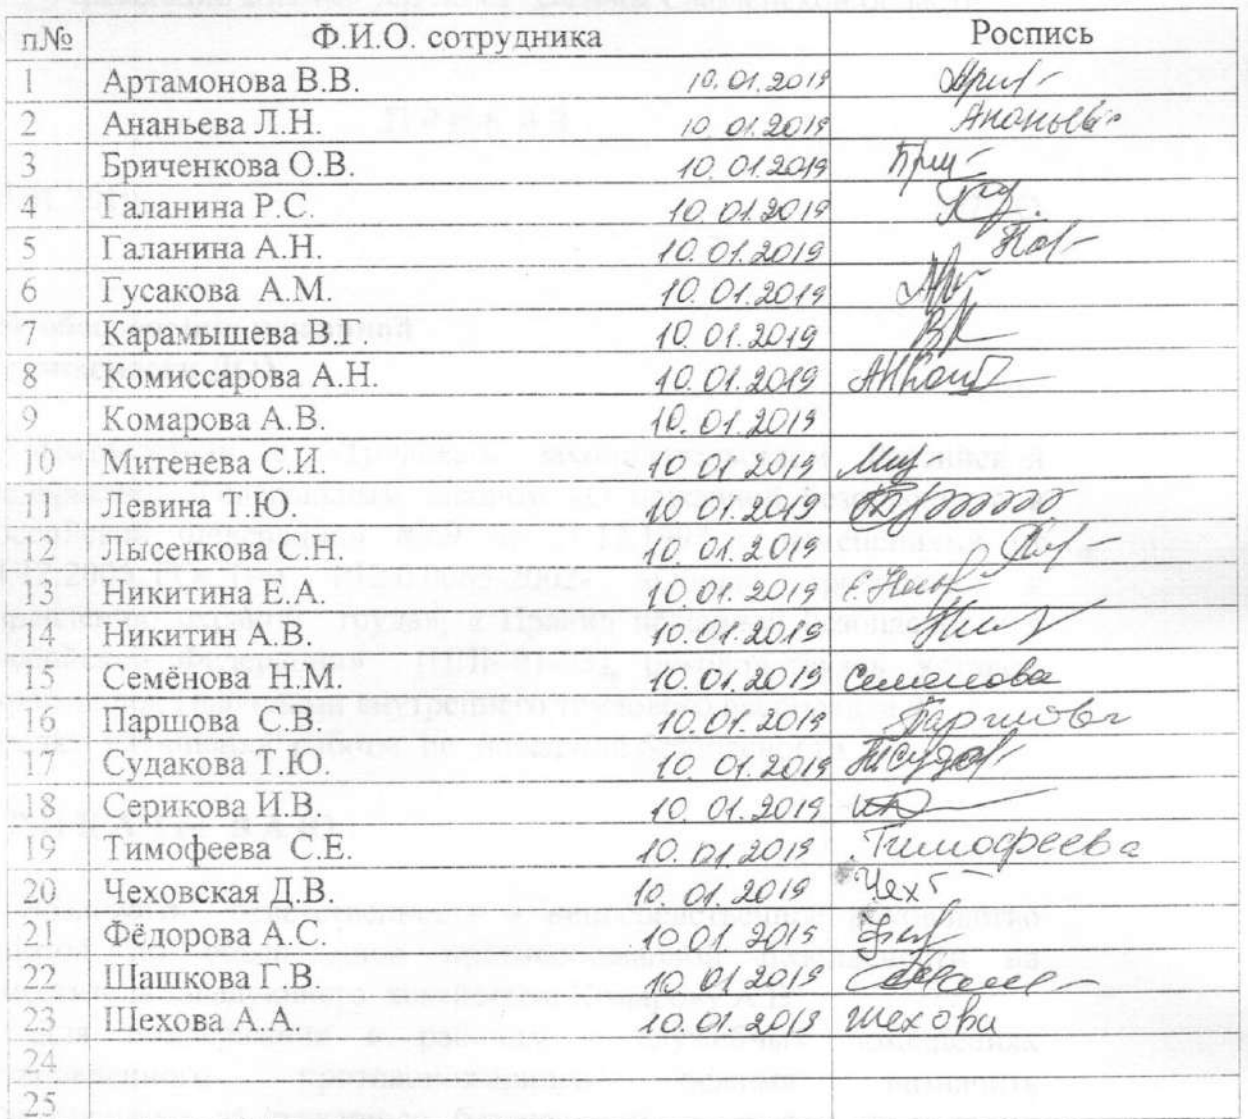 п№ Ф.И.О. сотрудника Роспись
1 Артамонова В.В. 10.01.2019
2 Ананьева Л.Н. 10.01.2019 Ананьева
3 Бриченкова О.В. 10.01.2019
4 Галанина Р.С. 10.01.2019
5 Галанина А.Н. 10.01.2019
6 Гусакова А.М. 10.01.2019
7 Карамышева В.Г. 10.01.2019
8 Комиссарова А.Н. 10.01.2019
9 Комарова А.В. 10.01.2019
10 Митенева С.И. 10 01 2019
11 Левина Т.Ю. 10.01.2019
12 Лысенкова С.Н. 10.01.2019
13 Никитина Е.А. 10.01.2019
14 Никитин А.В. 10.01.2019
15 Семёнова Н.М. 10.01.2019 Семенова
16 Паршова С.В. 10.01.2019 Паршова
17 Судакова Т.Ю. 10.01.2019
18 Серикова И.В. 10.01.2019
19 Тимофеева С.Е. 10.01.2019 Тимофеева
20 Чеховская Д.В. 10.01.2019 Чех
21 Фёдорова А.С. 10.01.2019
22 Шашкова Г.В. 10.01.2019
23 Шехова А.А. 10.01.2019 Шехова
24
25